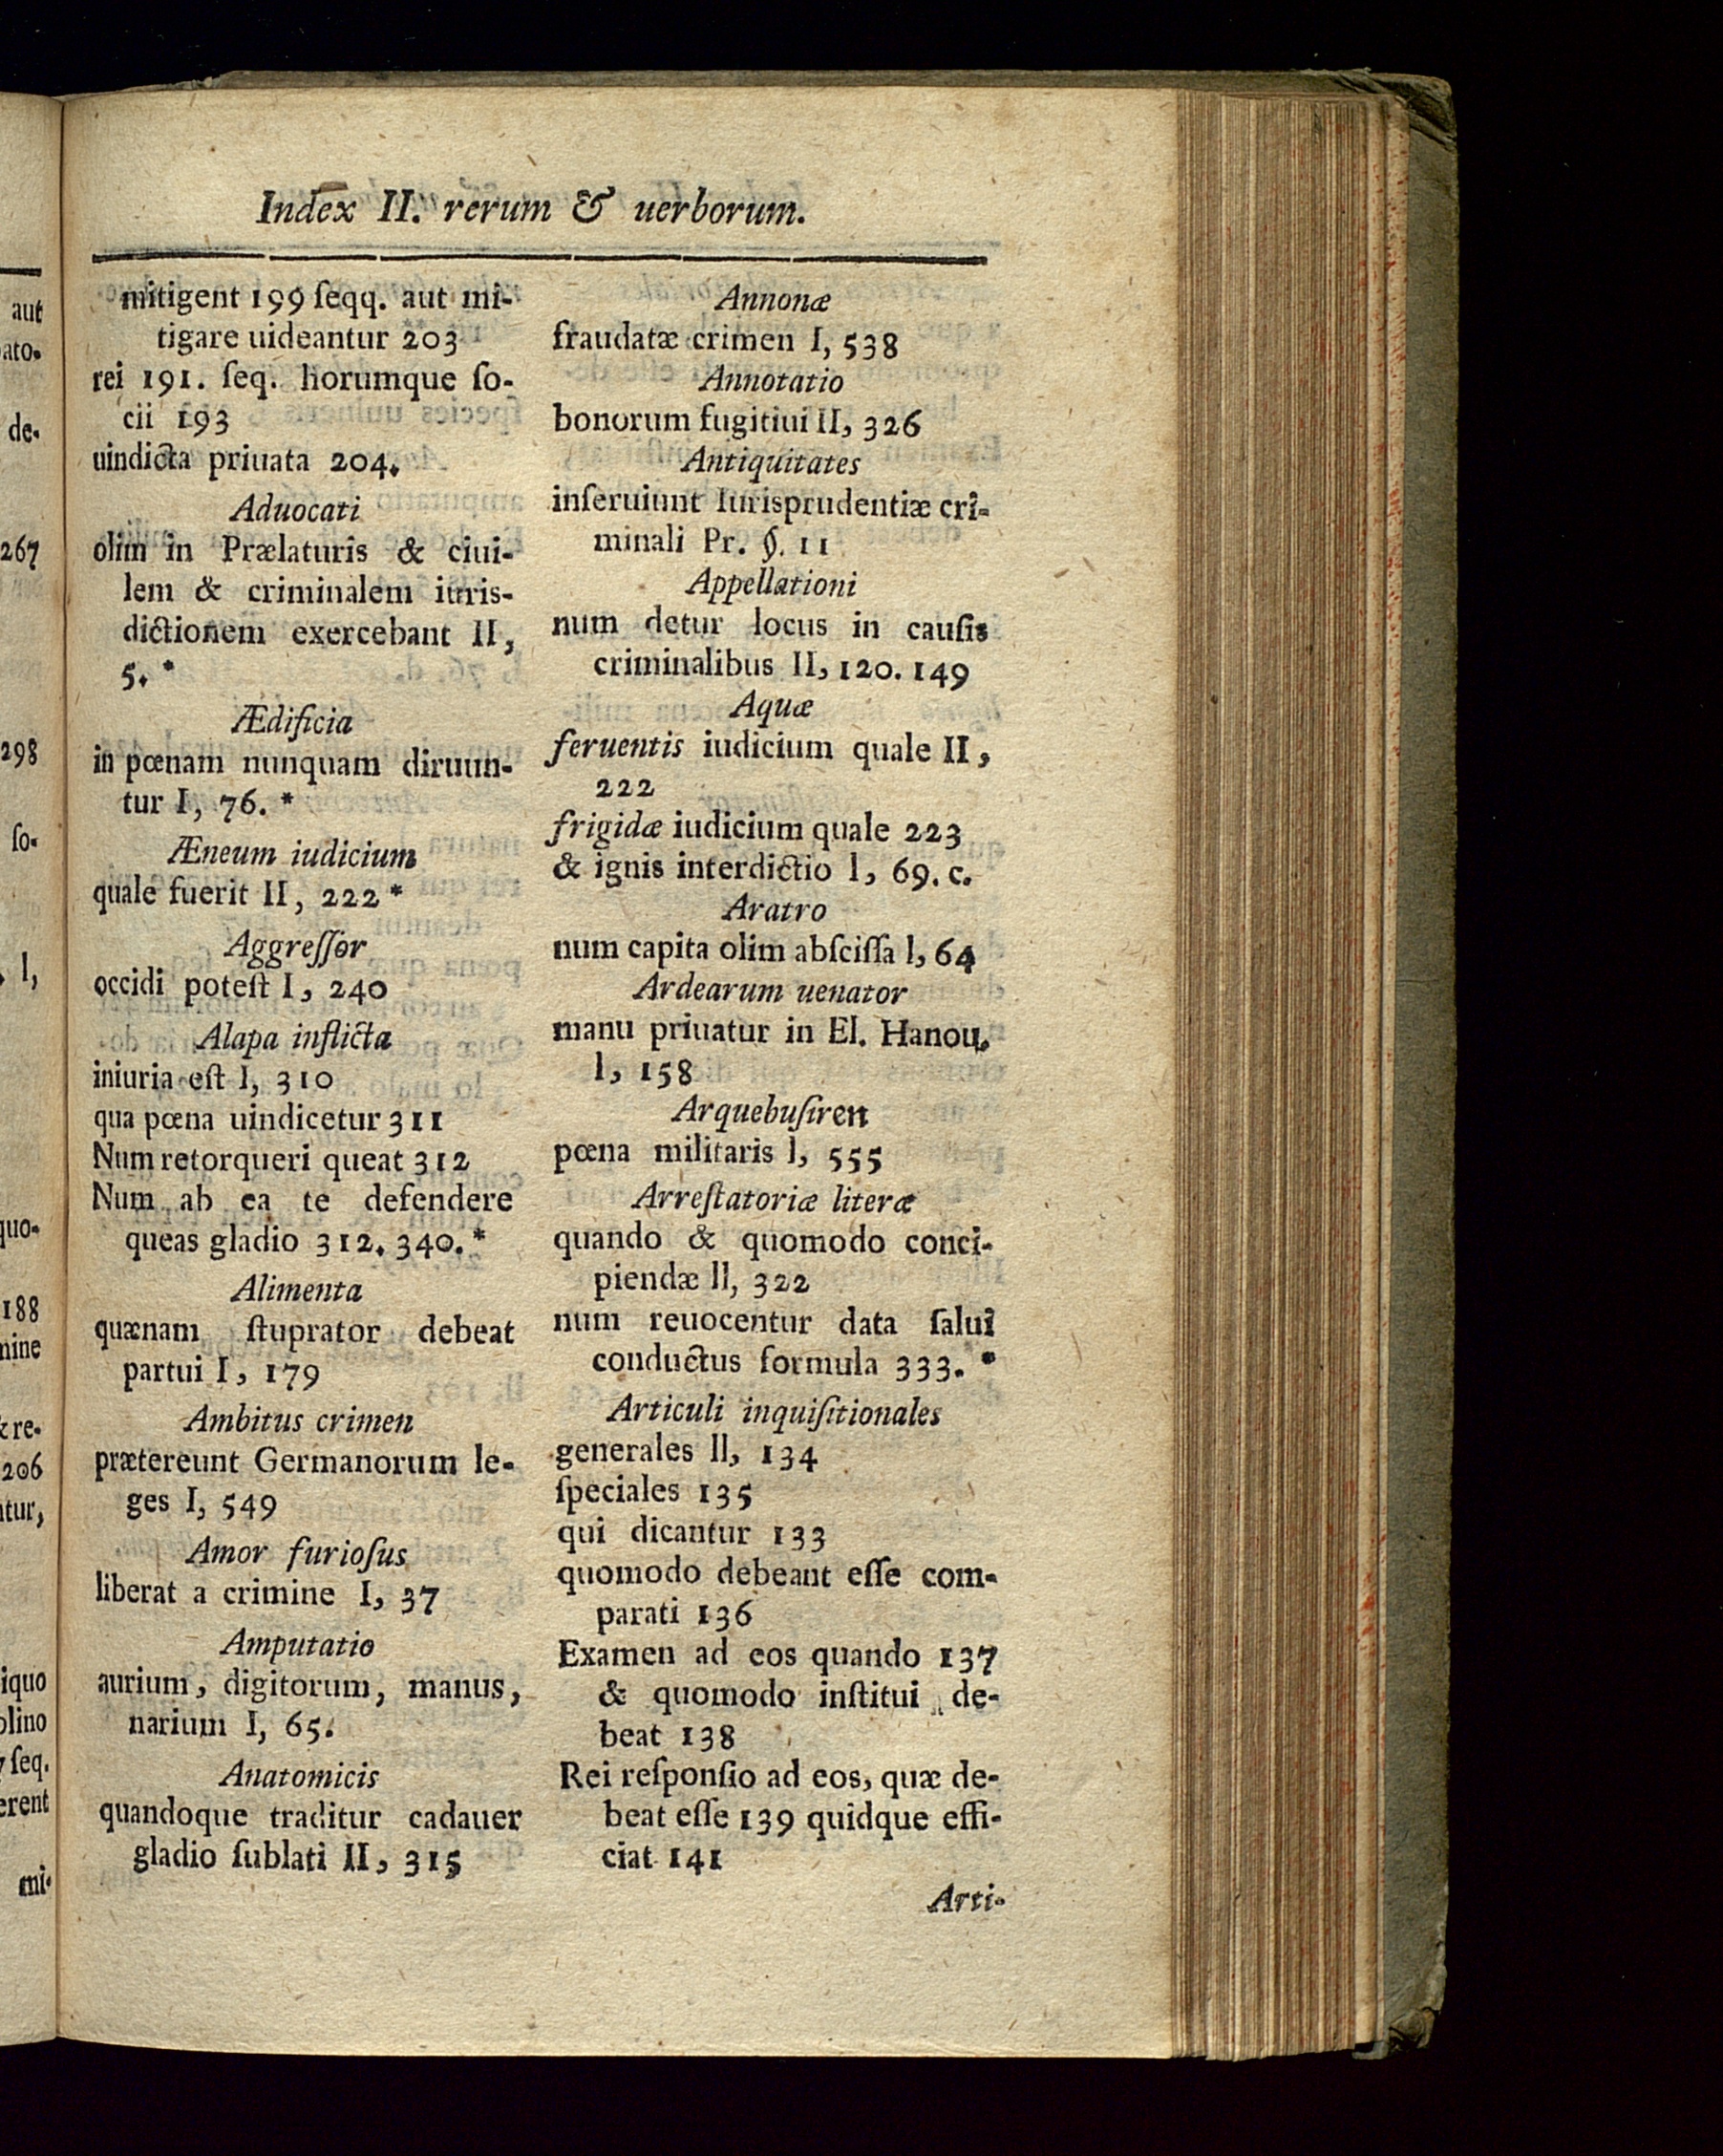 Index II. rerum & uerborum.
mitigent 199 ſeqq. aut mi-
tigare uideantur 203
rei 191. ſeq. horumque ſo-
cii 193
uindicta priuata 204.
Aduocati
olim in Prælaturis & ciui-
lem & criminalem iuris-
dictionem exercebant II,
5. *
Ædificia
in pœnam nunquam diruun-
tur I, 76. *
Æneum iudicium
quale fuerit II, 222 *
Aggreſſor
occidi poteſt I, 240
Alapa inflicta
iniuria eſt I, 310
qua pœna uindicetur 311
Num retorqueri queat 312
Num ab ea te defendere
queas gladio 312. 340. *
Alimenta
quænam ſtuprator debeat
partui I, 179
Ambitus crimen
prætereunt Germanorum le-
ges I, 549
Amor furioſus
liberat a crimine I, 37
Amputatio
aurium, digitorum, manus,
narium I, 65.
Anatomicis
quandoque traditur cadauer
gladio ſublati II, 315
Annonæ
fraudatæ crimen I, 538
Annotatio
bonorum fugitiui II, 326
Antiquitates
inſeruiunt Iurisprudentiæ cri-
minali Pr. §. 11
Appellationi
num detur locus in cauſis
criminalibus II, 120. 149
Aquæ
feruentis iudicium quale II,
222
frigidæ iudicium quale 223
& ignis interdictio I, 69. c.
Aratro
num capita olim abſciſſa I, 64
Ardearum uenator
manu priuatur in El. Hanou.
I, 158
Arquebuſiren
pœna militaris I, 555
Arreſtatoriæ literæ
quando & quomodo conci-
piendæ II, 322
num reuocentur data ſalui
conductus formula 333. *
Articuli inquiſitionales
generales II, 134
ſpeciales 135
qui dicantur 133
quomodo debeant eſſe com-
parati 136
Examen ad eos quando 137
& quomodo inſtitui de-
beat 138
Rei reſponſio ad eos, quæ de-
beat eſſe 139 quidque effi-
ciat 141
Arti-